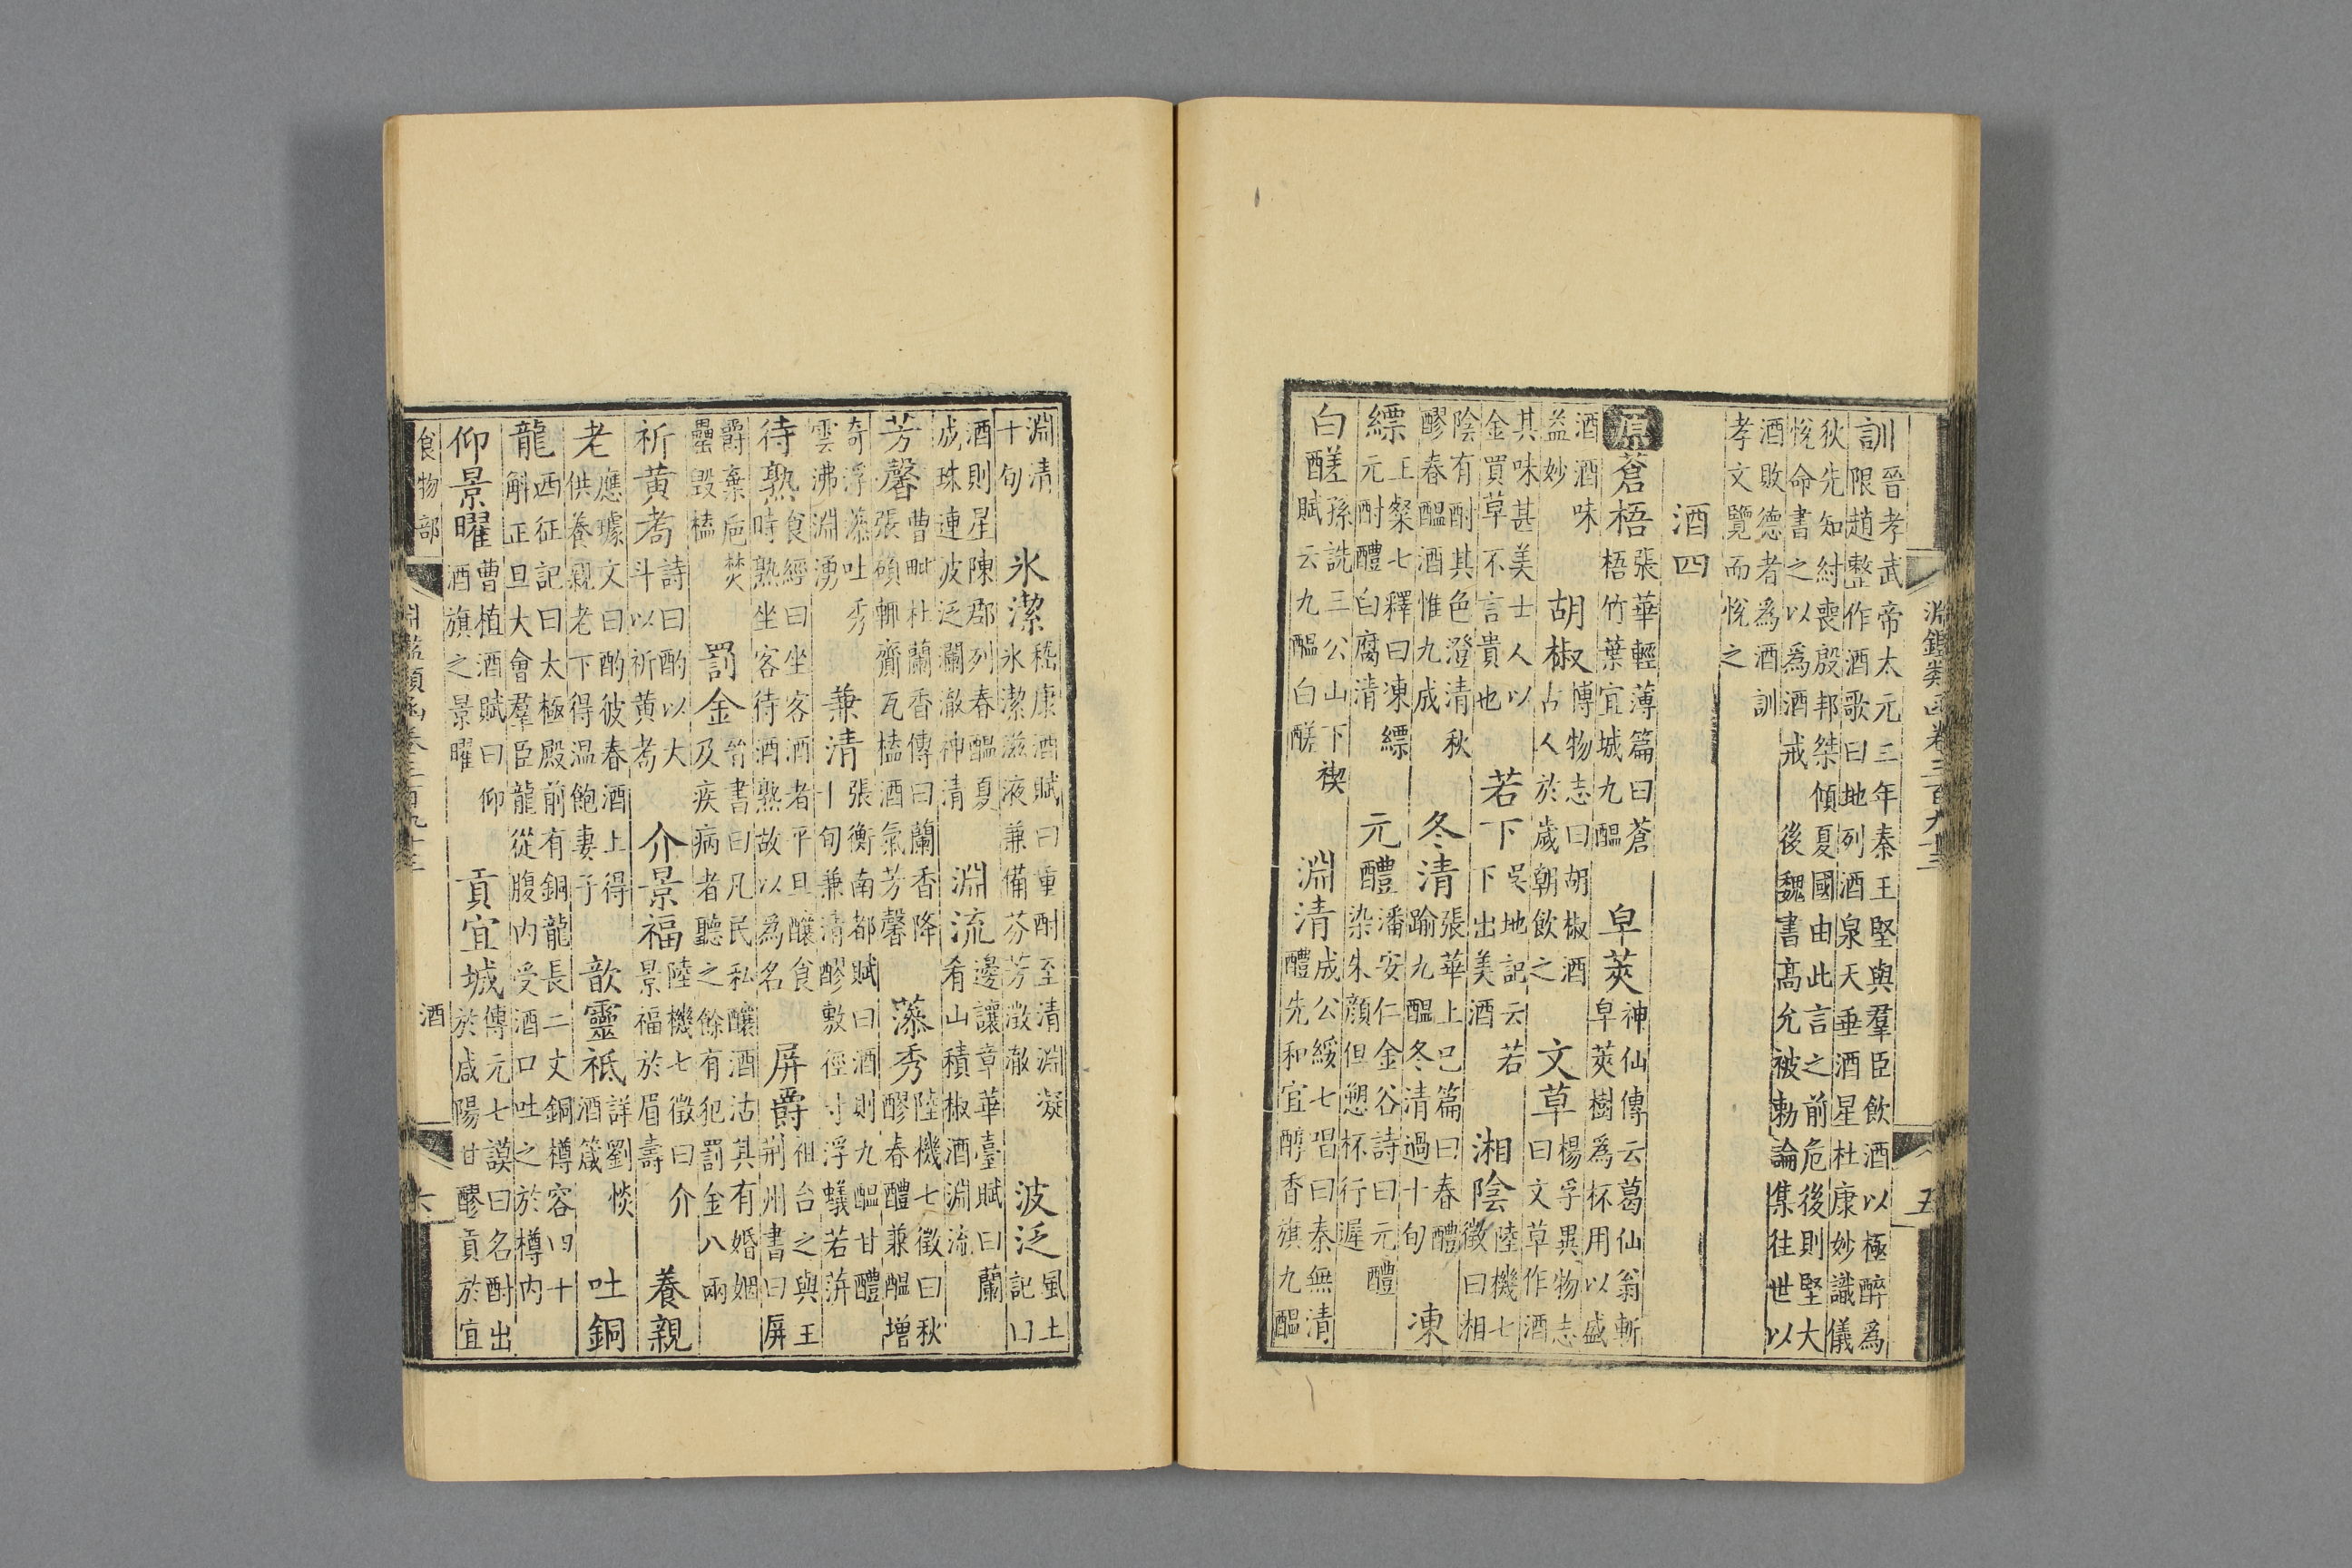 淵鑑類函卷三百九十三 五
訓晉孝武帝太元二年秦王堅與羣臣飲酒以極醉為限趙整作酒歌曰地列酒泉天垂酒星杜康妙識儀
狄先知紂喪殷邦桀傾夏國由此言之前危後則堅大悅命書之以為酒戒 後魏書高允被勅論集往世以
酒敗德者為酒訓孝文覽而悅之
酒四
原蒼梧張華輕薄篇曰蒼梧竹葉宜城九醞 皁莢神仙傳云葛仙翁斬皁莢樹為杯用以盛
酒酒味益妙 胡椒博物志曰胡椒酒古人於歲朝飲之 文草楊孚異物志曰文草作酒
其味甚美士人以金買草不言貴也 若下吳地記云若下出美酒 湘陰陸機七徵曰湘
陰有酎其色澄清秋醪春醞酒惟九成 冬清張華上巳篇曰春醴踰九醞冬清過十旬 凍
縹王粲七釋曰凍縹元酎醴白腐清 元醴潘安仁金谷詩曰元醴染朱顔但愬杯行遲
白醝孫詵三公山下禊賦云九醞白醝 淵清成公綏七唱曰秦無清醴先和宜醇香旗九醞
淵清十旬 氷潔嵇康酒賦曰重酎至清淵凝氷潔滋液兼備芬芳澂澈 波泛風土記曰
酒則星陳郡列春醞夏成珠連波泛瀾澈神清 淵流邊讓章華臺賦曰蘭肴山積椒酒淵流
芳馨曹毗杜蘭香傳曰蘭香降張碩輒齎瓦榼酒氣芳馨 蕩秀陸機七徵曰秋醪春醴兼醞增
奇浮蕩吐秀雲沸淵湧 兼清張衡南都賦曰酒則九醞甘醴十旬兼清醪敷徑寸浮蟻若蓱
待熟食經曰坐客酒者平旦釀食時熟坐客待酒熟故以為名 屏爵祖台之與王荆州書曰屏
爵棄巵焚罍毀榼 罰金晉書曰凡民私釀酒沽其有婚姻及疾病者聽之餘有犯罰金八兩
祈黄耇詩曰酌以大斗以祈黄耇 介景福陸機七徵曰介景福於眉壽 養親
老應璩文曰酌彼春酒上得供養親老下得温飽妻子 歆靈祗詳劉惔酒箴 吐銅
龍西征記曰太極殿前有銅龍長二丈銅樽容四十斛正旦大會羣臣龍從腹内受酒口吐之於樽内
仰景曜曹植酒賦曰仰酒旗之景曜 貢宜城傳元七謨曰名酎出於咸陽甘醪貢於宜
食物部 酒
淵鑑類函卷三百九十三 六